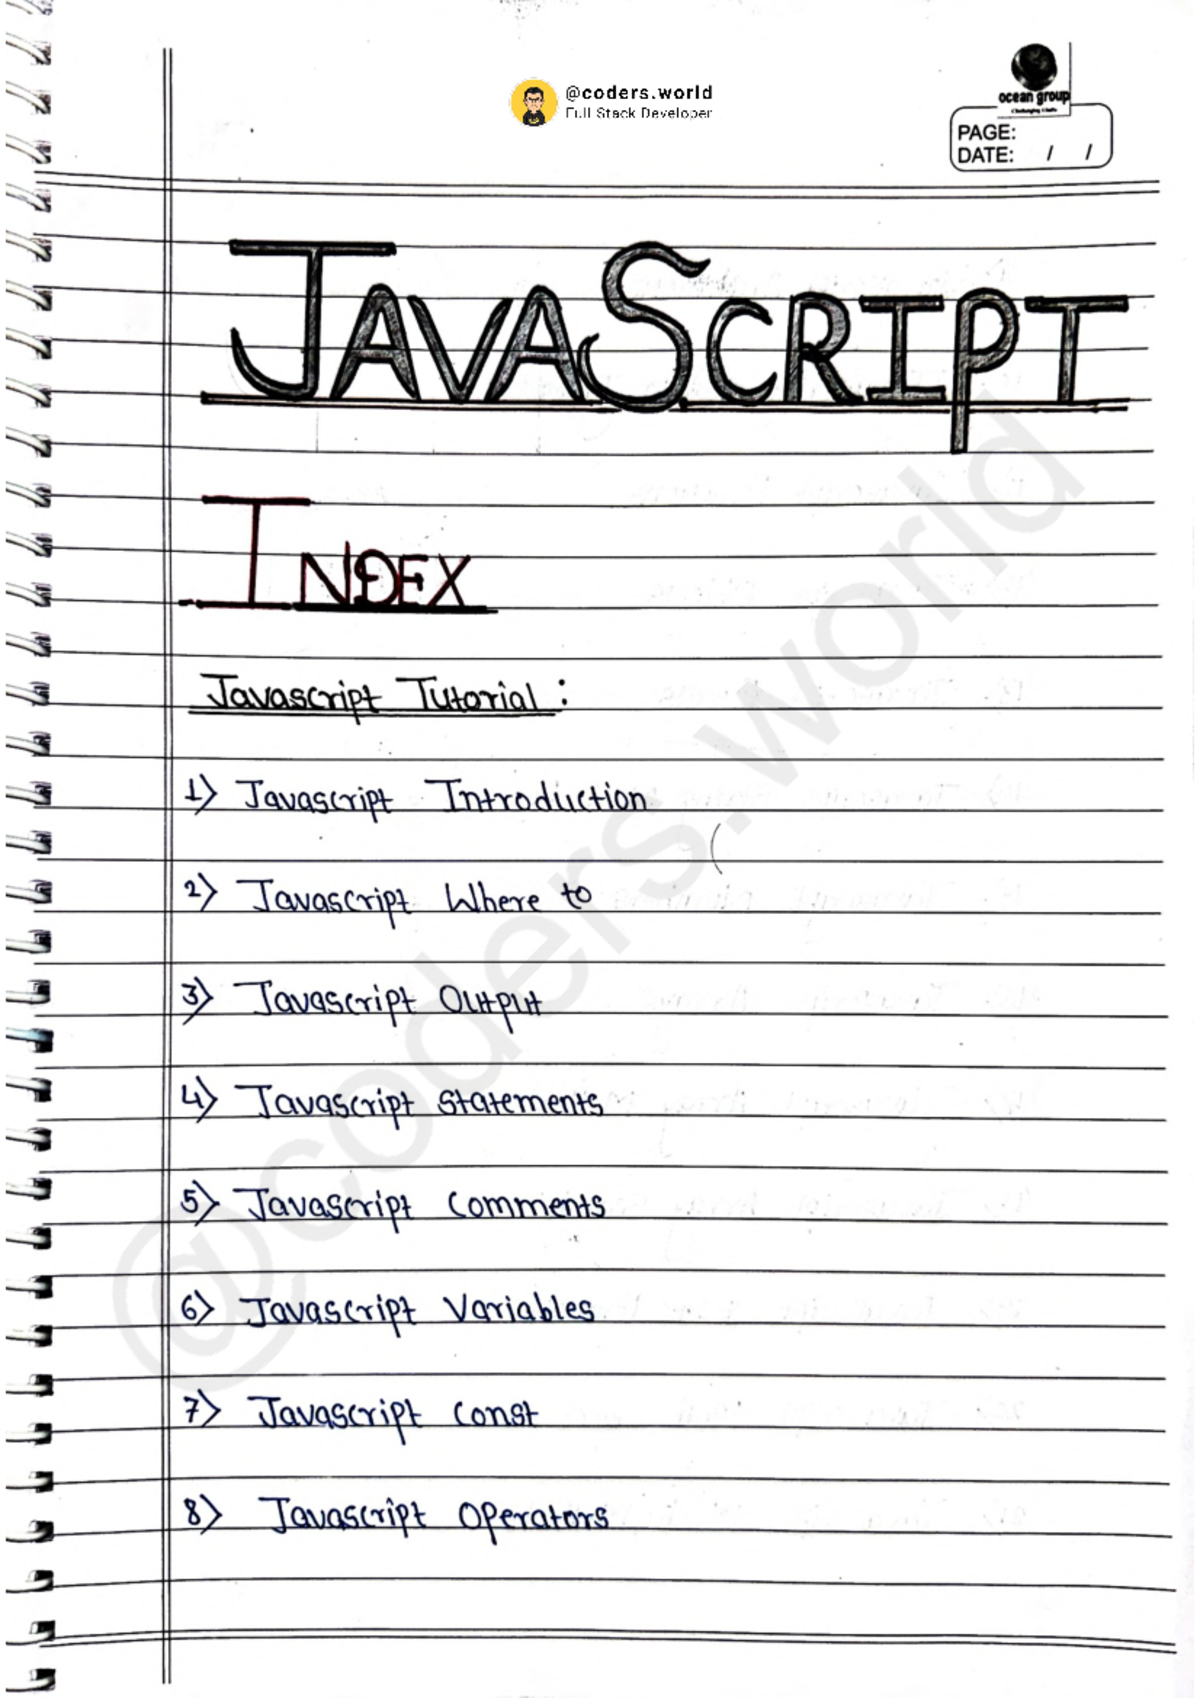 @coders.world
Full Stack Developer
ocean group
PAGE:
DATE: / /
JAVASCRIPT
INDEX
Javascript Tutorial :
1) Javascript Introduction
2) Javascript Where to
3) Javascript Output
4) Javascript Statements
5) Javascript Comments
6) Javascript Variables
7) Javascript Const
8) Javascript Operators
@coders.world